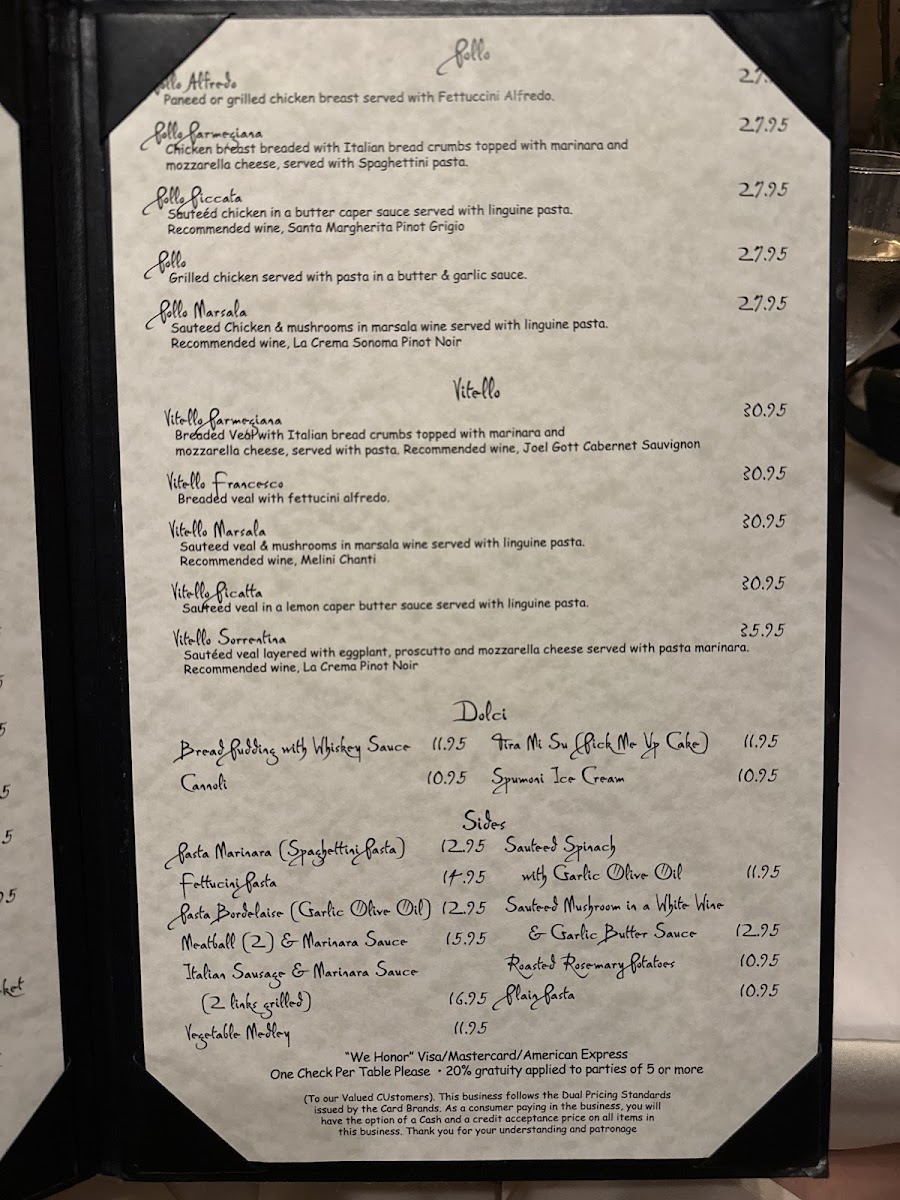 Pollo
Pollo Alfredo 27.
Paneed or grilled chicken breast served with Fettuccini Alfredo.
Pollo Parmegiana 27.95
Chicken breast breaded with Italian bread crumbs topped with marinara and
mozzarella cheese, served with Spaghettini pasta.
Pollo Piccata 27.95
Sauteéd chicken in a butter caper sauce served with linguine pasta.
Recommended wine, Santa Margherita Pinot Grigio
Pollo 27.95
Grilled chicken served with pasta in a butter & garlic sauce.
Pollo Marsala 27.95
Sauteed Chicken & mushrooms in marsala wine served with linguine pasta.
Recommended wine, La Crema Sonoma Pinot Noir
Vitello
Vitello Parmegiana 30.95
Breaded Veal with Italian bread crumbs topped with marinara and
mozzarella cheese, served with pasta. Recommended wine, Joel Gott Cabernet Sauvignon
Vitello Francesco 30.95
Breaded veal with fettucini alfredo.
Vitello Marsala 30.95
Sauteed veal & mushrooms in marsala wine served with linguine pasta.
Recommended wine, Melini Chanti
Vitello Picatta 30.95
Sauteed veal in a lemon caper butter sauce served with linguine pasta.
Vitello Sorrentina 35.95
Sautéed veal layered with eggplant, proscutto and mozzarella cheese served with pasta marinara.
Recommended wine, La Crema Pinot Noir
Dolci
Bread Pudding with Whiskey Sauce 11.95 Tira Mi Su (Pick Me Up Cake) 11.95
Cannoli 10.95 Spumoni Ice Cream 10.95
Sides
Pasta Marinara (Spaghettini Pasta) 12.95 Sauteed Spinach
Fettucini Pasta 14.95 with Garlic Olive Oil 11.95
Pasta Bordelaise (Garlic Olive Oil) 12.95 Sauteed Mushroom in a White Wine
Meatball (2) & Marinara Sauce 15.95 & Garlic Butter Sauce 12.95
Italian Sausage & Marinara Sauce Roasted Rosemary Potatoes 10.95
(2 links grilled) 16.95 Plain Pasta 10.95
Vegetable Medley 11.95
"We Honor" Visa/Mastercard/American Express
One Check Per Table Please • 20% gratuity applied to parties of 5 or more
(To our Valued CUstomers). This business follows the Dual Pricing Standards
issued by the Card Brands. As a consumer paying in the business, you will
have the option of a Cash and a credit acceptance price on all items in
this business. Thank you for your understanding and patronage